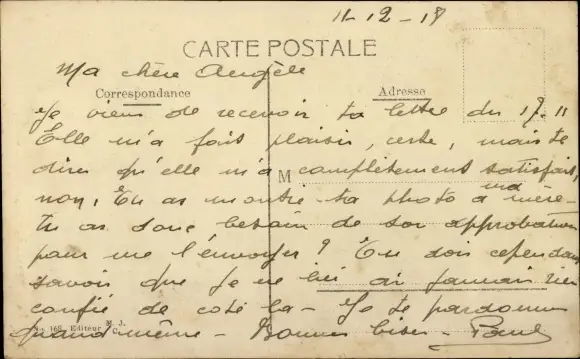 11-12-18
CARTE POSTALE
Ma chère Angèle
Correspondance
Adresse
Je viens de recevoir ta lettre du 17.11
Elle m'a fait plaisir, certe, mais te
dire qu'elle m'a complètement satisfait,
M
non, Tu as montré ta photo a ma mère -
tu as donc besoin de son approbation
pour me l'envoyer ? Tu dois cependant
savoir que je ne lui ai jamais rien
confié de coté la - Je te pardonne
quand même - Bonnes bises - Paul
No 168. Editeur M. J.